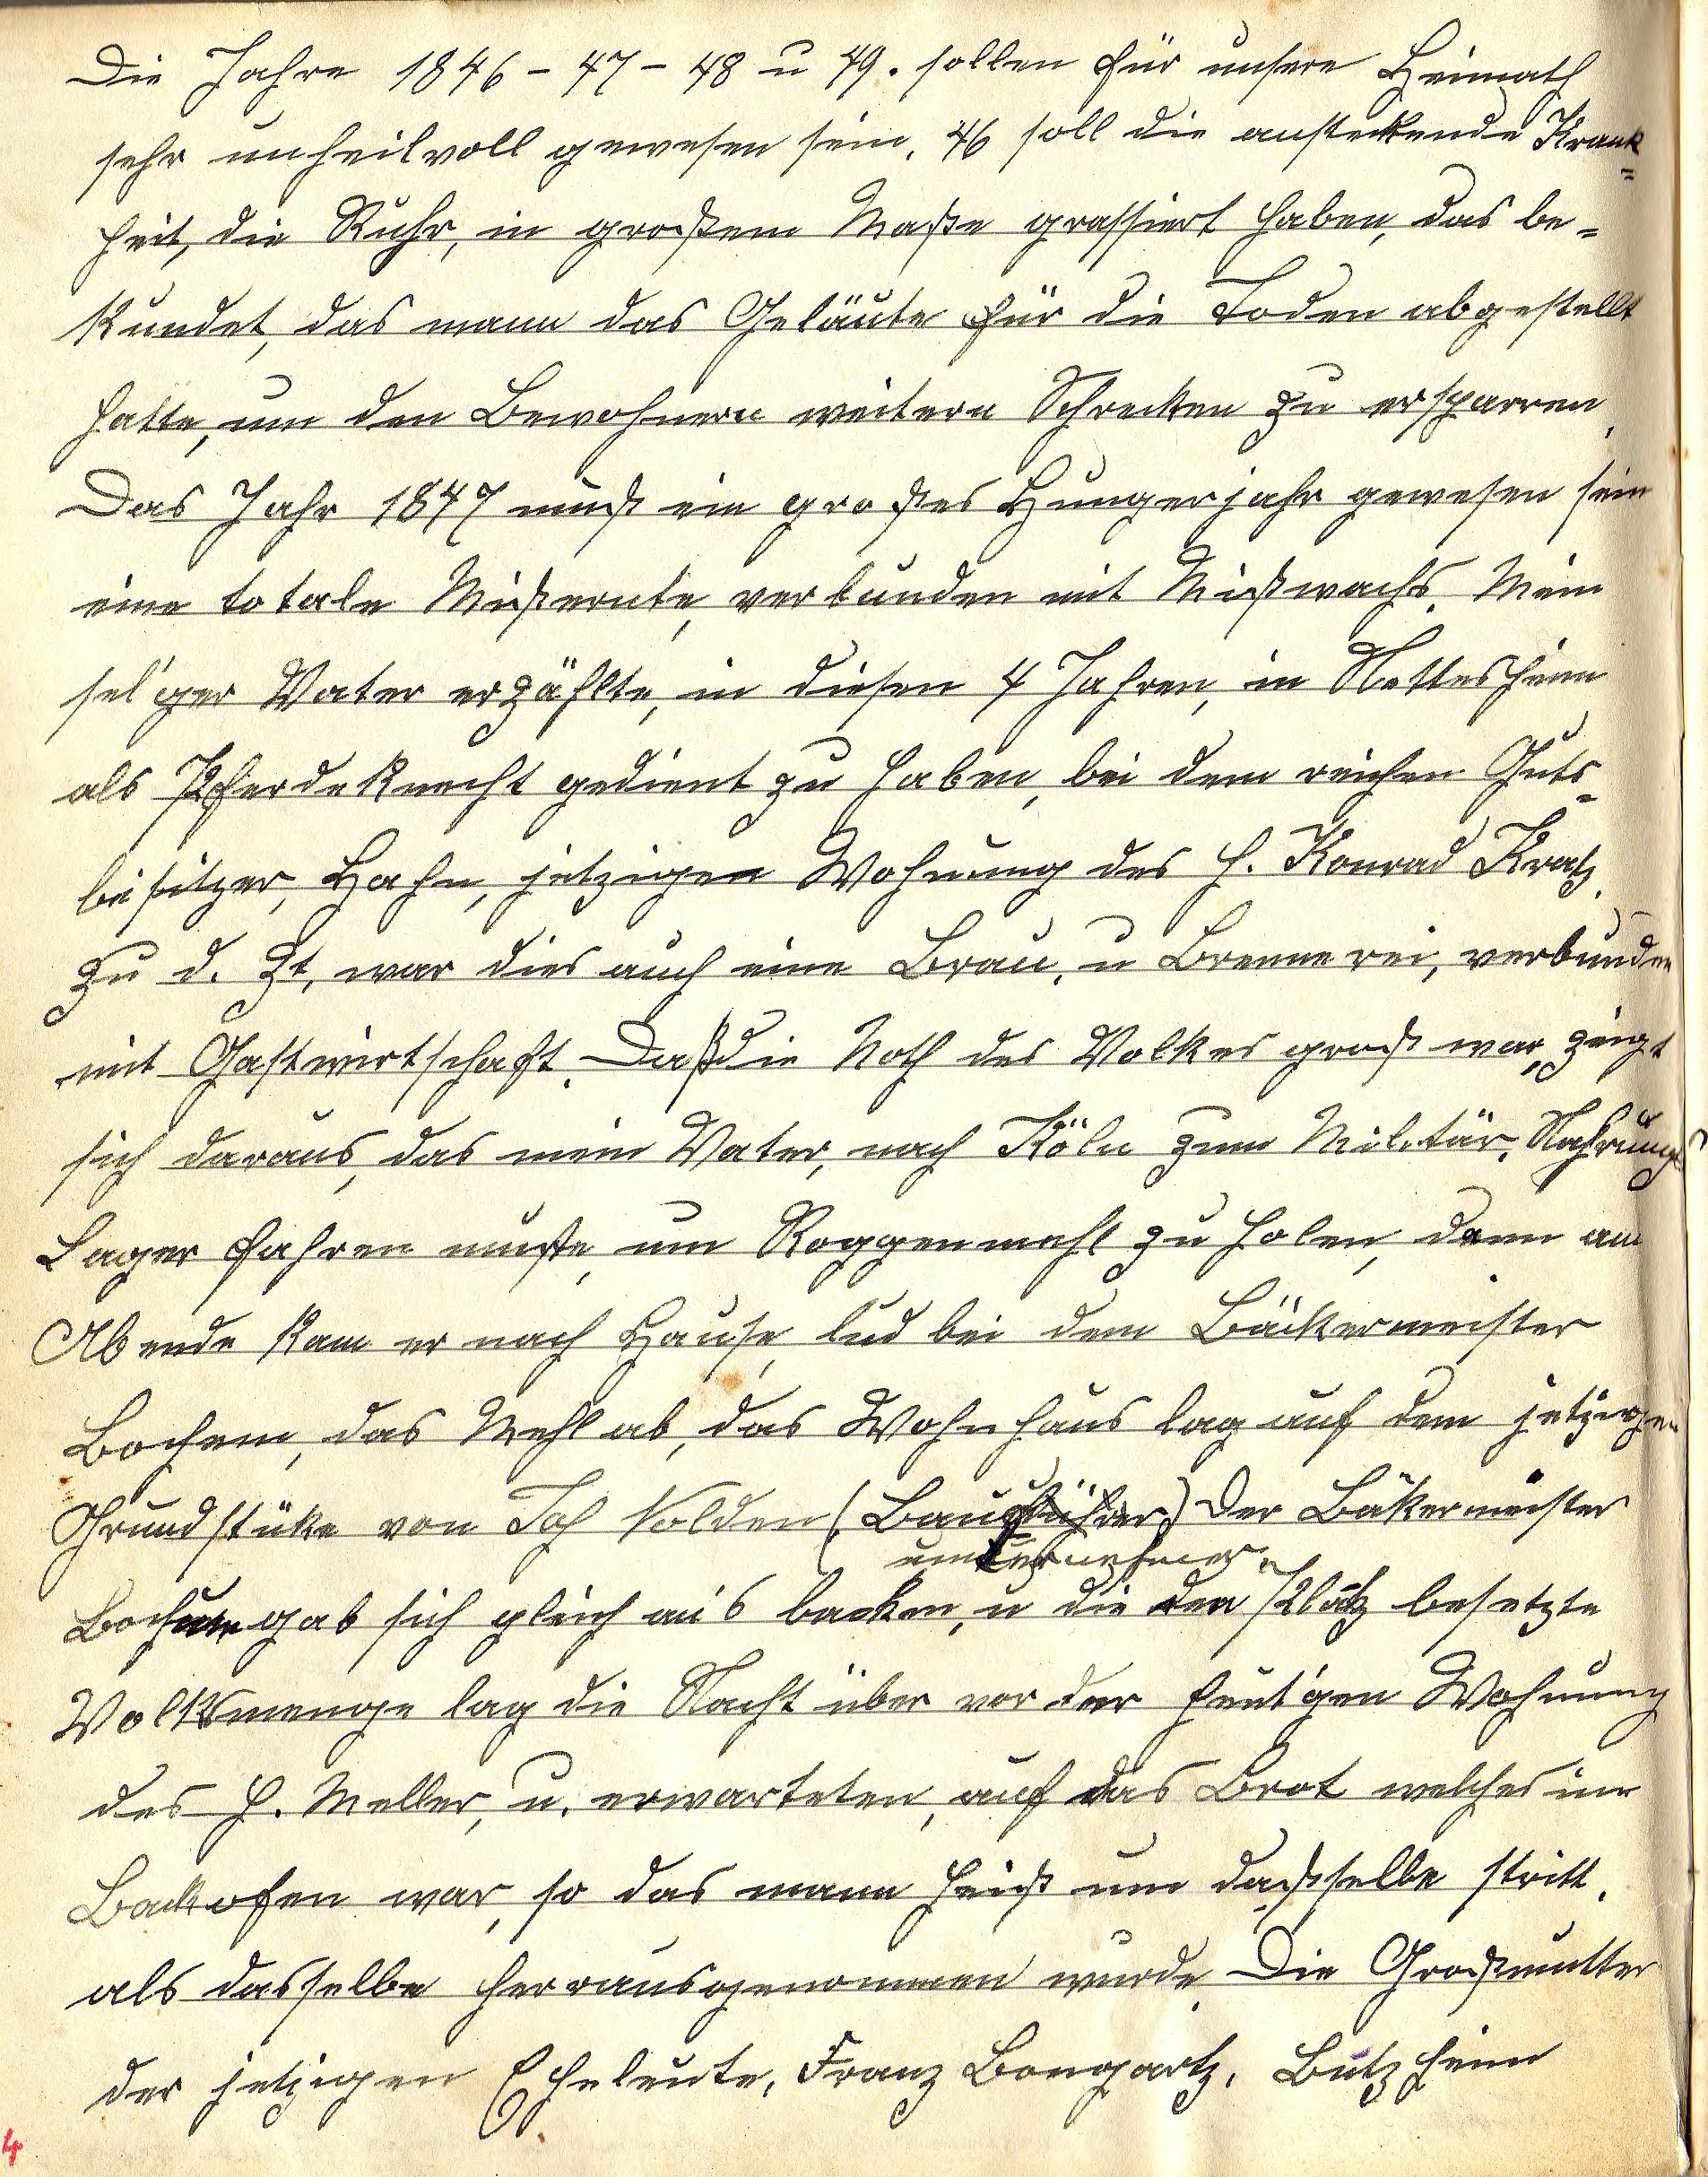 Die Jahre 1846 - 47 - 48 u 49. sollen für unsere Heimath
sehr unheilvoll gewesen sein, 46 soll die ansteckende Krank=
heit, die Ruhr, in großem Maße grassiert haben, das be=
kundet, das mann das Geläute für die Toden abgestellt
hatte, um den Bewohnern weitern Schrecken zu ersparren,
Das Jahr 1847 muß ein großes Hungerjahr gewesen sein
eine totale Mißernte, verbunden mit Mißwachs. Mein
sel'ger Vater erzählte, in diesen 4 Jahren, in Nettesheim
als Pferdeknecht gedient zu haben, bei dem reichen Guts=
besitzer, Hahn, jetzigen Wohnung des H. Konrad Kratz.
Zu d. Zt, war dies auch eine Brau, u Brennerei, verbunden
mit Gastwirtschaft. Daß die Noth des Volkes groß war, zeigt
sich daraus, das mein Vater, nach Köln zum Militär, Nahrungs
Lager fahren mußte, um Roggenmehl zu holen, dann am
Abende kam er nach Hause, lud bei dem Bäckermeister
Bochem, das Mehl ab, das Wohnhaus lag auf dem jetzigen
Grundstüke von Joh Nolden (Bauführer) Der Bäkermeister
unternehmer.
Bochem gab sich gleich an's backen, u die den Platz besetzte
Volksmenge lag die Nacht über vor der heut'gen Wohnung
des H. Meller, u. erwarteten, auf das Brot welches im
Backofen war, so das mann heiß um daßselbe stritt,
als dasselbe herrausgenommen wurde. Die Großmutter
der jetzigen Eheleute, Franz Bongartz, Butzheim
4